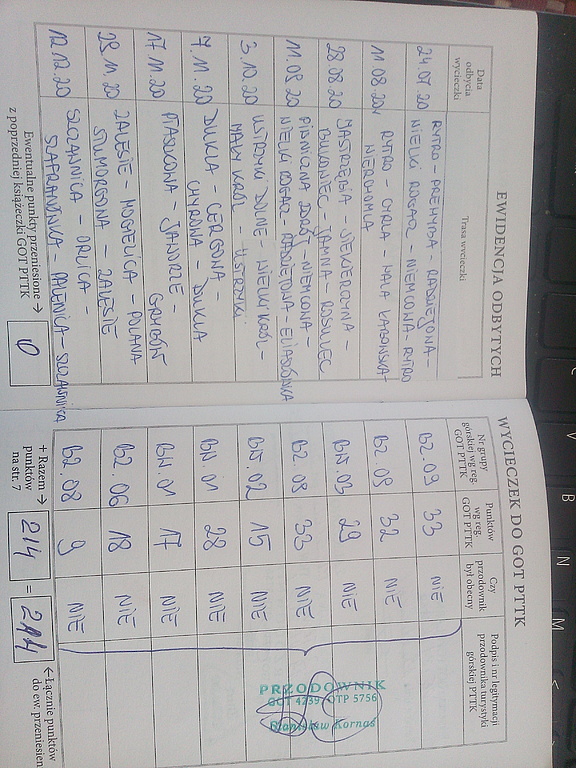 EWIDENCJA ODBYTYCH
WYCIECZEK DO GOT PTTK
Data
odbycia
wycieczki
Trasa wycieczki
Nr grupy
górskiej wg reg.
GOT PTTK
Punktów
wg reg.
GOT PTTK
Czy
przodownik
był obecny
Podpis i nr legitymacji
przodownika turystyki
górskiej PTTK
24.07.20
RYTRO - PREHYBA - RADZIEJOWA -
WIELKI ROGACZ - NIEMCOWA - RYTRO
BZ.09
33
NIE
11 08.20
RYTRO - CYRLA - HALA ŁABOWSKA
WIERCHOMLA
BZ.09
32
NIE
28 08.20
JASTRZĘBIA -
BUKOWIEC - JAMNA -
29
NIE
11.08.20
PIWNICZNA ZDRÓJ - NIEMCOWA -
WIELKI ROGACZ - RADZIEJOWA - ELIASZÓWKA
BZ.09
33
NIE
3.10.20
USTRZYKI DOLNE - WIELKI KRÓL -
MAŁY KRÓL - USTRZYKI
15
NIE
7.11.20
DUKLA - CERGOWA -
CHYROWA - DUKLA
BN.01
28
NIE
17.11.20
PTASZKOWA - JAWORZE -
GRYBÓW
BN.01
17
NIE
28.11.20
ZALESIE - MOGIELICA - POLANA
STUMORGOWA - ZALESIE
BZ.06
18
NIE
12.12.20
SZCZAWNICA - ORLICA -
SZAFRANÓWKA - PALENICA - SZCZAWNICA
BZ.08
9
NIE
PRZODOWNIK
GOT 4239 OTP 5756
Stanisław Kornaś
Ewentualne punkty przeniesione →
z poprzedniej książeczki GOT PTTK
0
+ Razem →
punktów
na str. 7
214
=
214
←Łącznie punktów
do ew. przeniesien
B
N
M